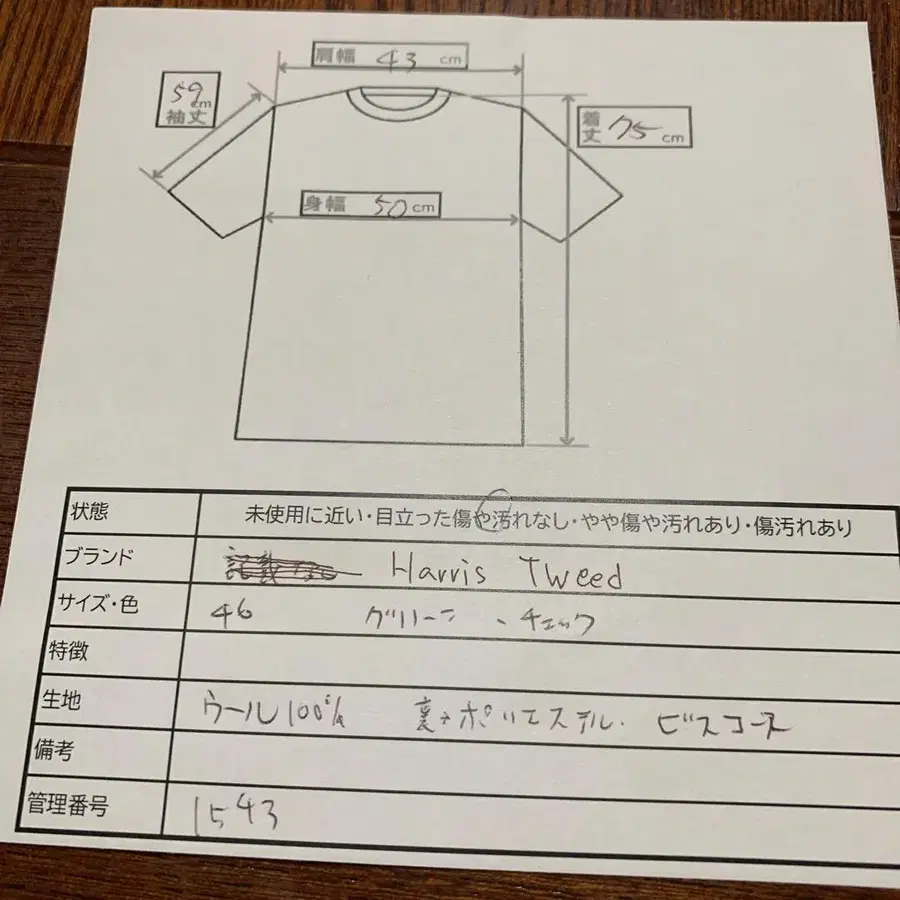 肩幅 43 cm
59cm
袖丈
着丈 75 cm
身幅 50 cm
状態 未使用に近い・目立った傷や汚れなし・やや傷や汚れあり・傷汚れあり
ブランド 記載なし Harris Tweed
サイズ・色 46 グリーン、チェック
特徴
生地 ウール100% 裏→ポリエステル・ビスコース
備考
管理番号 1543